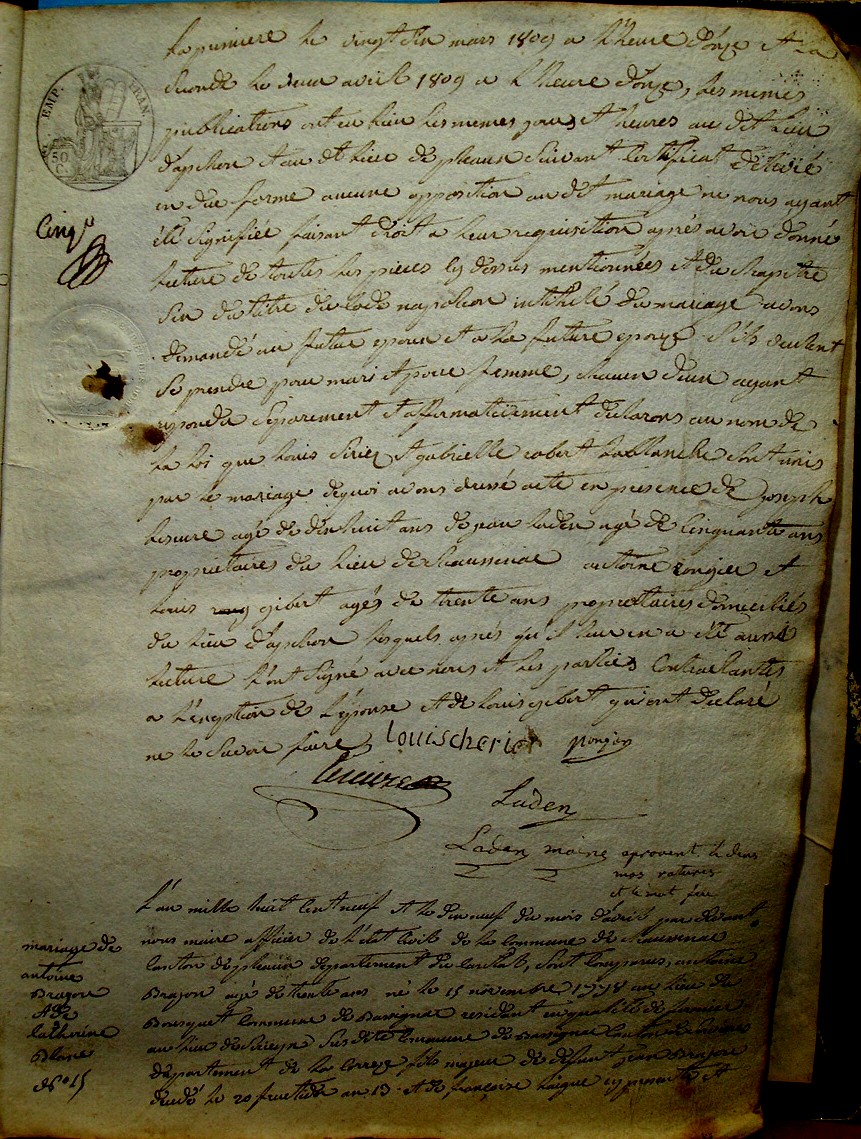 EMP. FRAN.
50 C
la premiere le vingt six mars 1809 a l'heure d'onze et la
seconde le deux avril 1809 a l'heure d'onze, les memes
publications ont eu lieu les memes jours et heures au dit lieu
d'apchon et au dt lieu de pleaux suivant certificat delivré
en due forme aucune opposition au dit mariage ne nous ayant
été signifiée faisant droit a leur requisition aprés avoir donné
lecture de toutes les pieces cy dessus mentionnées et du chapitre
six du titre du code napoleon intitulé du mariage avons
demandé au futur epoux et a la future epouse s'ils veulent
se prendre pour mari et pour femme, chacun d'eux ayant
repondu séparement et affirmativement declarons au nom de
la loi que louis et gabrielle sont unis
par le mariage de quoi avons dressé acte en presence de joseph
agé de dix huit ans de jean laden agé de cinquante ans
propriétaires du lieu de chaussenac antoine rongier et
louis gibert agés de trente ans propriétaires domiciliés
du lieu d'apchon lesquels aprés qu'il leur en a été aussi
lecture l'ont signé avec nous et les parties contractantes
a l'exeption de l'épouse et de louis gibert qui ont declaré
ne le savoir faire
Cinq
louischerier rongier
Laden
Laden maire aprouvent le deux
mos ratures
L'an mille huit cent neuf et le dix neuf du mois d'avril par devant
nous maire officier de l'etat civil de la commune de chaussenac
canton de pleaux departement du cantal, sont comparus, antoine
Brajon agé de trente ans né le 15 novembre 1778 au lieu de
Bousquet commune de Bassignac résident en qualité de fermier
au lieu de susdite commune de Bassignac canton
departement de la correze fils majeur de défunt jean Brajon
decedé le 20 fructidor an 13 et de françoise et
mariage de
antoine
Brajon
et de
Catherine
Blanc
N° 15